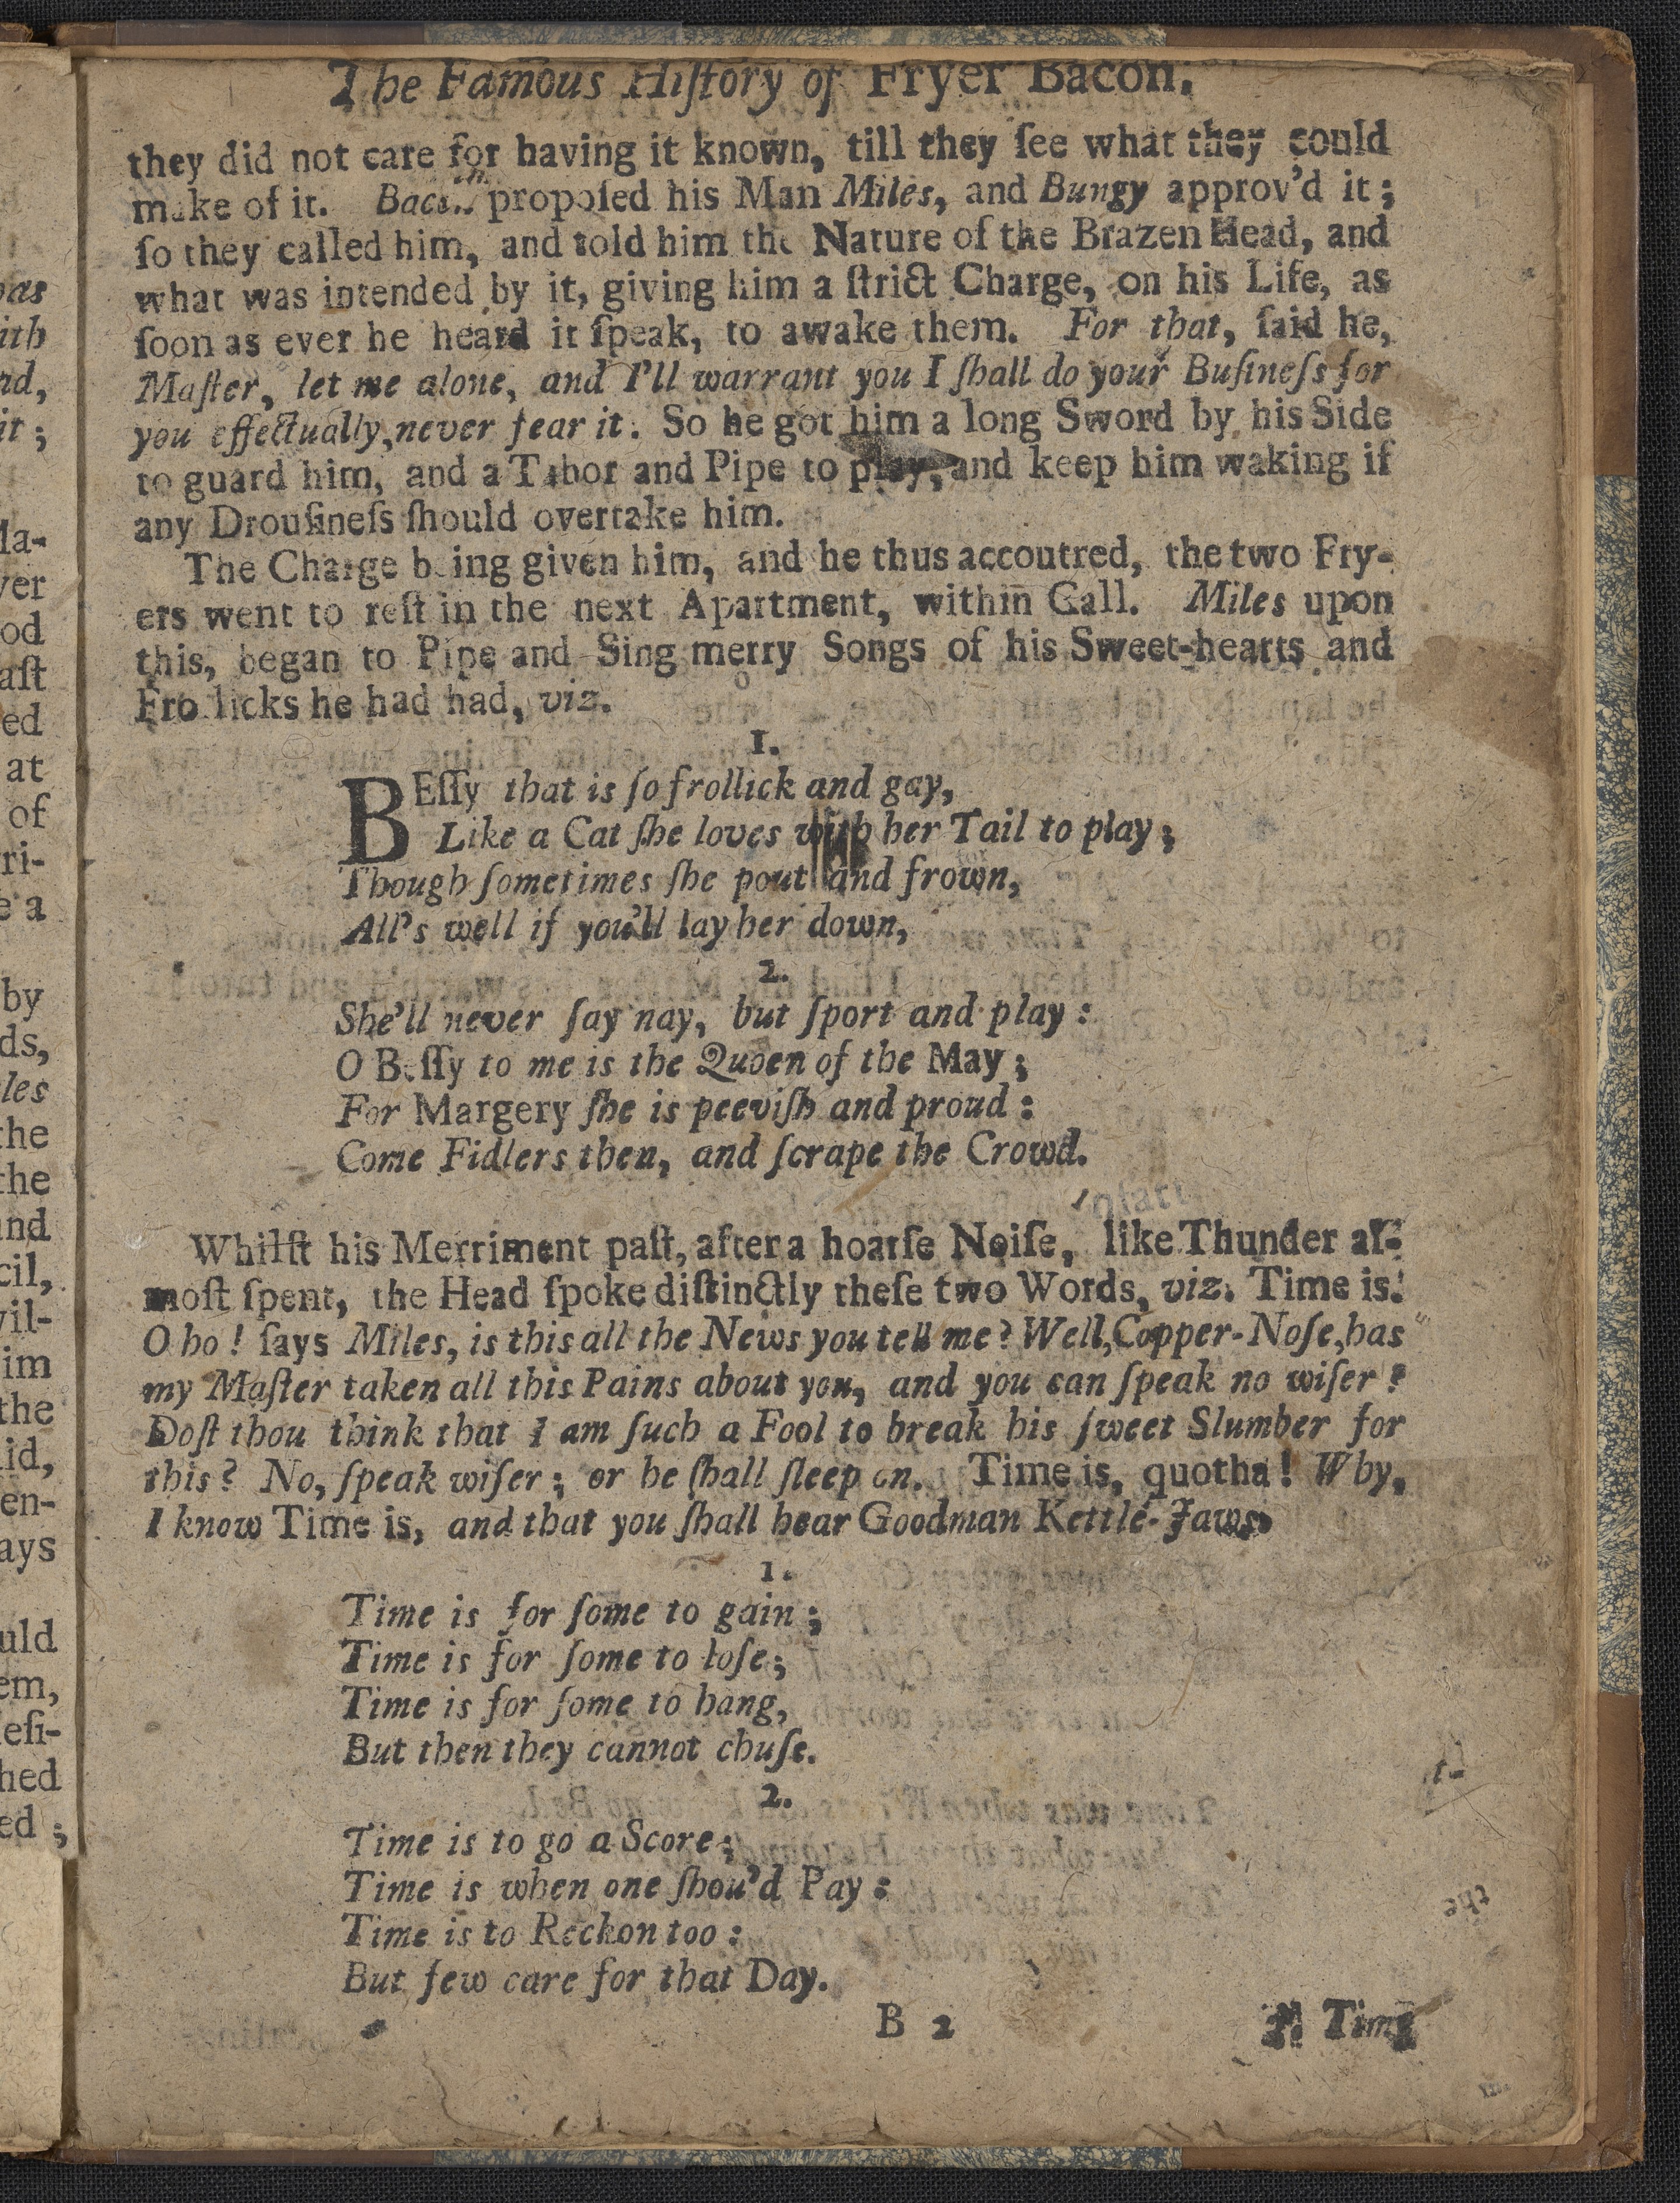 The Famous Hiſtory of Fryer Bacon.
they did not care for having it known, till they ſee what they could
make of it. Bacon propoſed his Man Miles, and Bungy approv'd it;
ſo they called him, and told him the Nature of the Brazen Head, and
what was intended by it, giving him a ſtrict Charge, on his Life, as
ſoon as ever he heard it ſpeak, to awake them. For that, ſaid he,
Maſter, let me alone, and I'll warrant you I ſhall do your Buſineſs for
you effectually, never fear it. So he got him a long Sword by his Side
to guard him, and a Tabor and Pipe to play, and keep him waking if
any Drouſineſs ſhould overtake him.
The Charge being given him, and he thus accoutred, the two Fry-
ers went to reſt in the next Apartment, within Call. Miles upon
this, began to Pipe and Sing merry Songs of his Sweet-hearts and
Frollicks he had had, viz.
1.
BEſſy that is ſo frollick and gay,
Like a Cat ſhe loves with her Tail to play;
Though ſometimes ſhe pout and frown,
All's well if you'll lay her down,
2.
She'll never ſay nay, but ſport and play:
O Beſſy to me is the Queen of the May;
For Margery ſhe is peeviſh and proud:
Come Fidlers then, and ſcrape the Crowd.
Whilſt his Merriment paſt, after a hoarſe Noiſe, like Thunder al-
moſt ſpent, the Head ſpoke diſtinctly theſe two Words, viz. Time is.
O ho! ſays Miles, is this all the News you tell me? Well, Copper-Noſe, has
my Maſter taken all this Pains about you, and you can ſpeak no wiſer?
Doſt thou think that I am ſuch a Fool to break his ſweet Slumber for
this? No, ſpeak wiſer; or he ſhall ſleep on. Time is, quotha! Why,
I know Time is, and that you ſhall hear Goodman Kettle-Jaws.
1.
Time is for ſome to gain;
Time is for ſome to loſe;
Time is for ſome to hang,
But then they cannot chuſe.
2.
Time is to go a Score;
Time is when one ſhou'd Pay:
Time is to Reckon too:
But few care for that Day.
B 2 Time